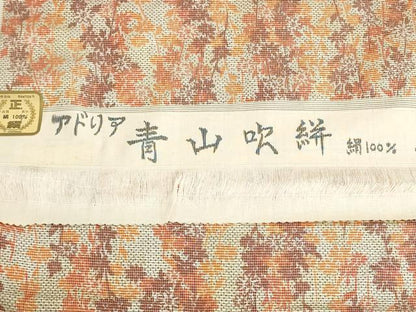 正
絹 100%
アドリア 青山吹絣 絹100%